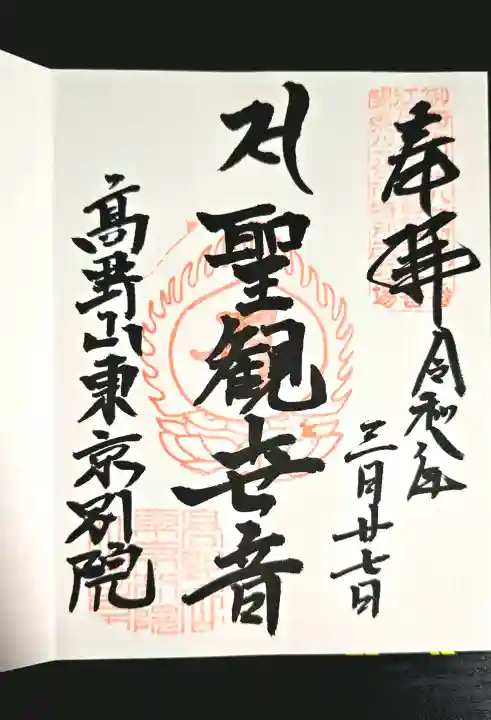 奉拝
令和八年
三月廿七日
聖観世音
高野山東京別院